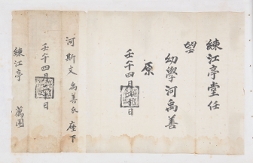 練江亭堂任
望
幼學河禹善
原
壬午四月 日
河斯文 禹善氏 座下
壬午四月 日
練江亭